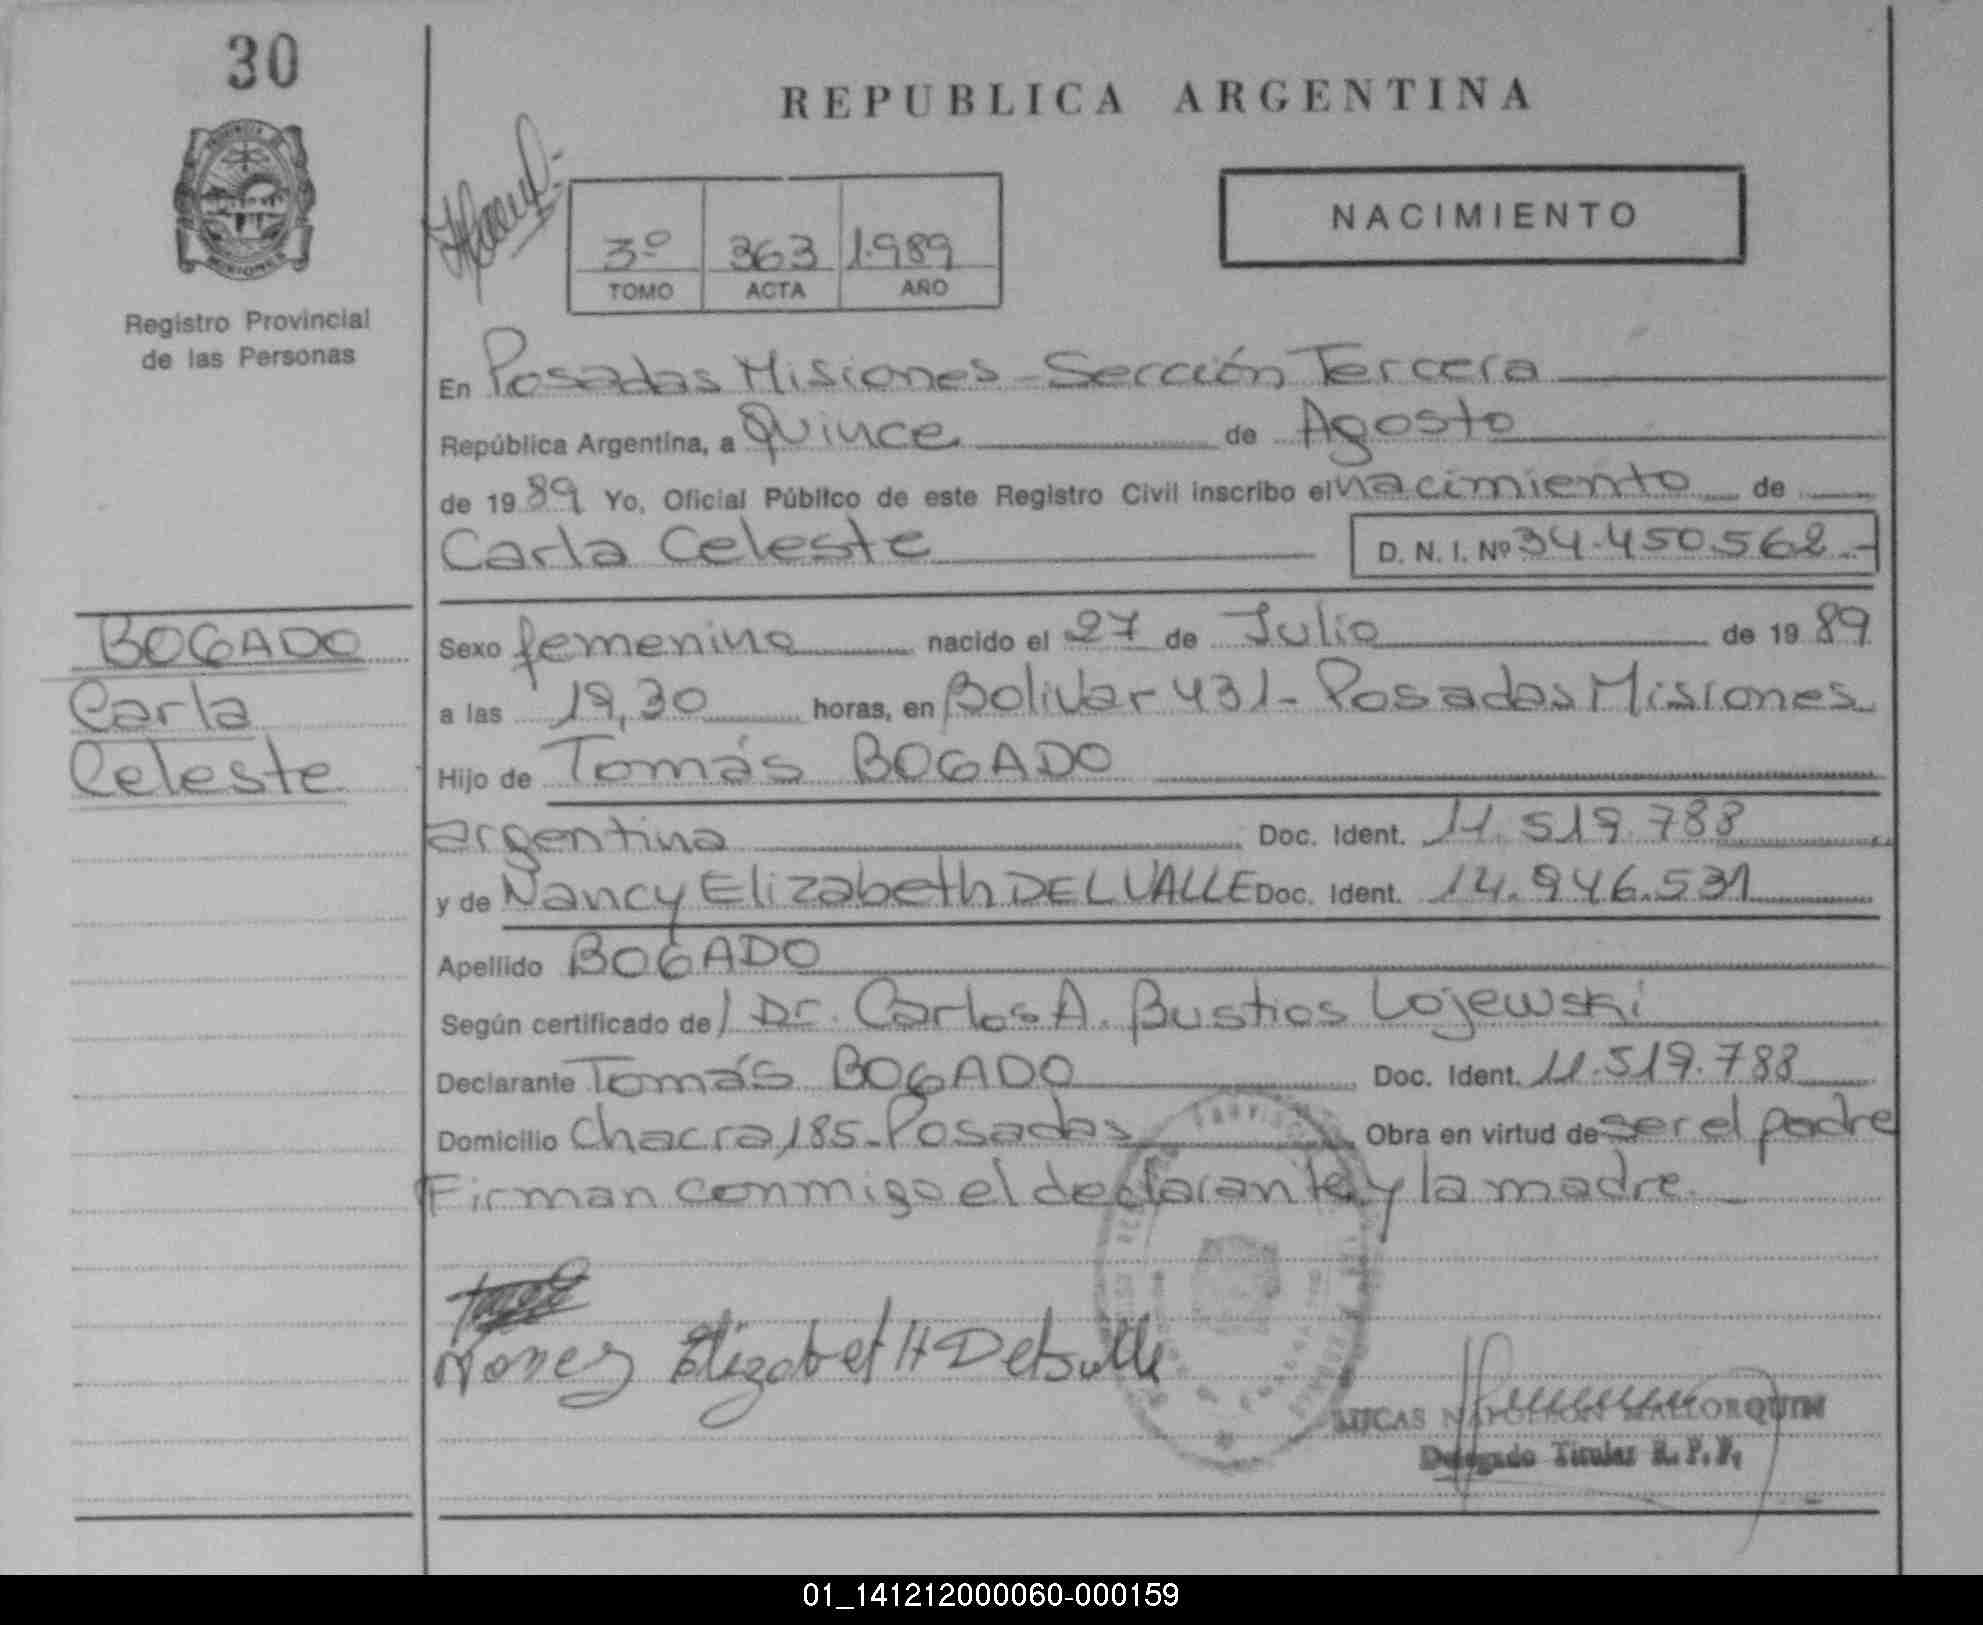 30
REPUBLICA ARGENTINA
NACIMIENTO
3º 363 1.989
TOMO ACTA AÑO
MISIONES
Registro Provincial
de las Personas
En Posadas Misiones - Sección Tercera
República Argentina, a Quince de Agosto
de 19 89 Yo, Oficial Público de este Registro Civil inscribo el nacimiento de
Carla Celeste D. N. I. Nº 34.450.562.-
BOGADO
Carla
Celeste
Sexo femenino nacido el 27 de Julio de 19 89
a las 19,30 horas, en Bolivar 431- Posadas Misiones
Hijo de Tomás BOGADO
argentina Doc. Ident. 11.519.788
y de Nancy Elizabeth DEL VALLE Doc. Ident. 14.946.531
Apellido BOGADO
Según certificado de / Dr. Carlos A. Bustios Lojewski
Declarante Tomás BOGADO Doc. Ident. 11.519.788
Domicilio Chacra 185-Posadas Obra en virtud de ser el padre
Firman conmigo el declarante y la madre. -
LUCAS NAPOLEON MALLORQUIN
Delegado Titular R. P. P.
01_141212000060-000159